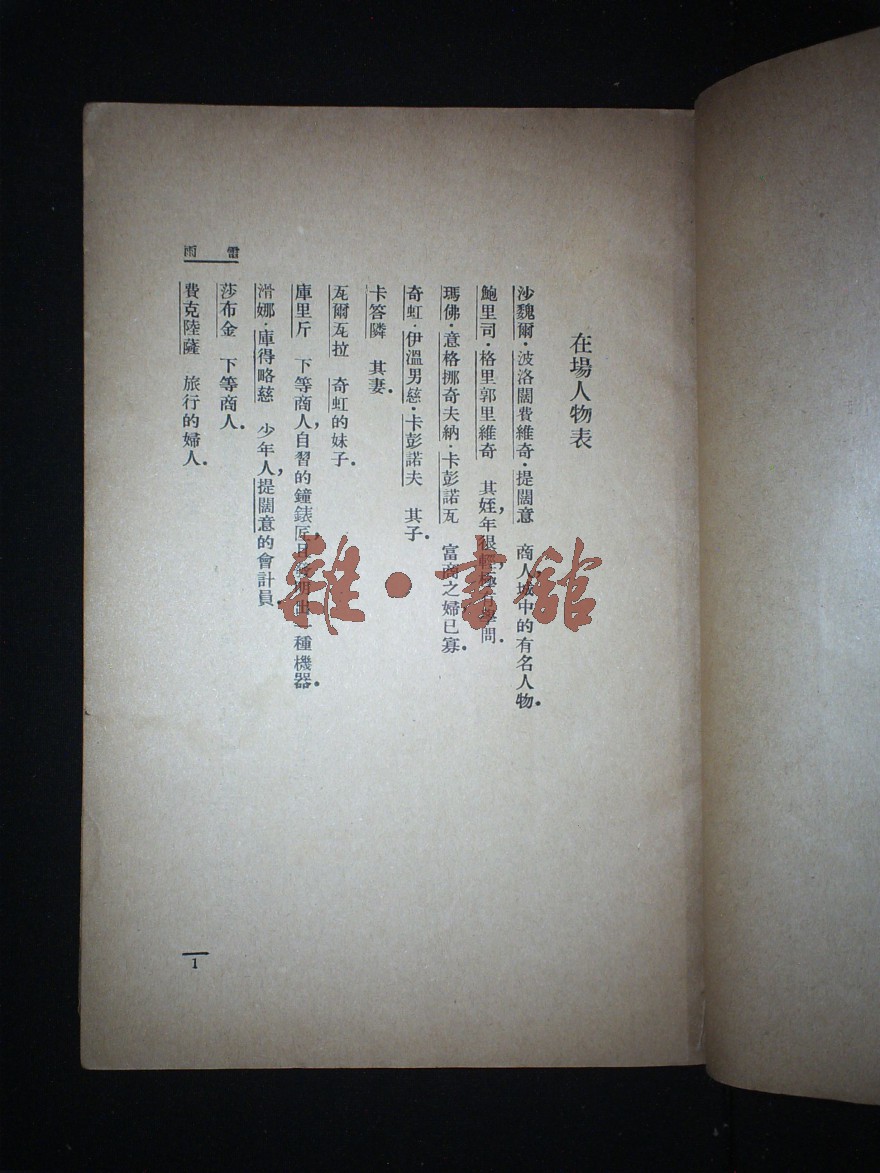 在場人物表
沙魏爾・波洛闊費維奇・提闊意　商人，城中的有名人物．
鮑里司・格里郭里維奇　其姪，年很輕，極有學問．
瑪佛・意格挪奇夫納・卡彭諾瓦　富商之婦，已寡．
奇虹・伊溫男慈・卡彭諾夫　其子．
卡答隣　其妻．
瓦爾瓦拉　奇虹的妹子．
庫里斤　下等商人，自習的鐘錶匠，種機器．
滑娜・庫得略慈　少年人，提闊意的會計員．
莎布金　下等商人．
費克陸薩　旅行的婦人．
雷雨
1
雜・書館